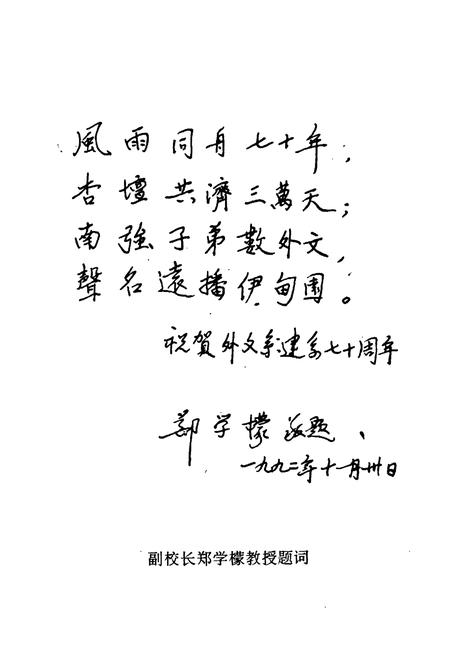 風雨同舟七十年，
杏壇共濟三萬天；
南強子弟數外文，
聲名遠播伊甸園。
祝賀外文系建系七十周年
郑学檬敬题、
一九九二年十一月卅日
副校长郑学檬教授题词